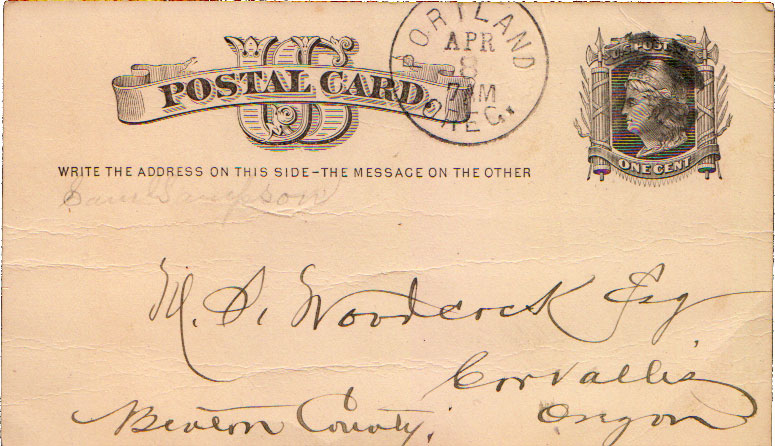 U S
POSTAL CARD
PORTLAND
APR
8
7 AM
OREG.
U.S. POSTAGE
ONE CENT
WRITE THE ADDRESS ON THIS SIDE–THE MESSAGE ON THE OTHER
Sampson
M. S. Woodcock Esq
Corvallis
Benton County, Oregon